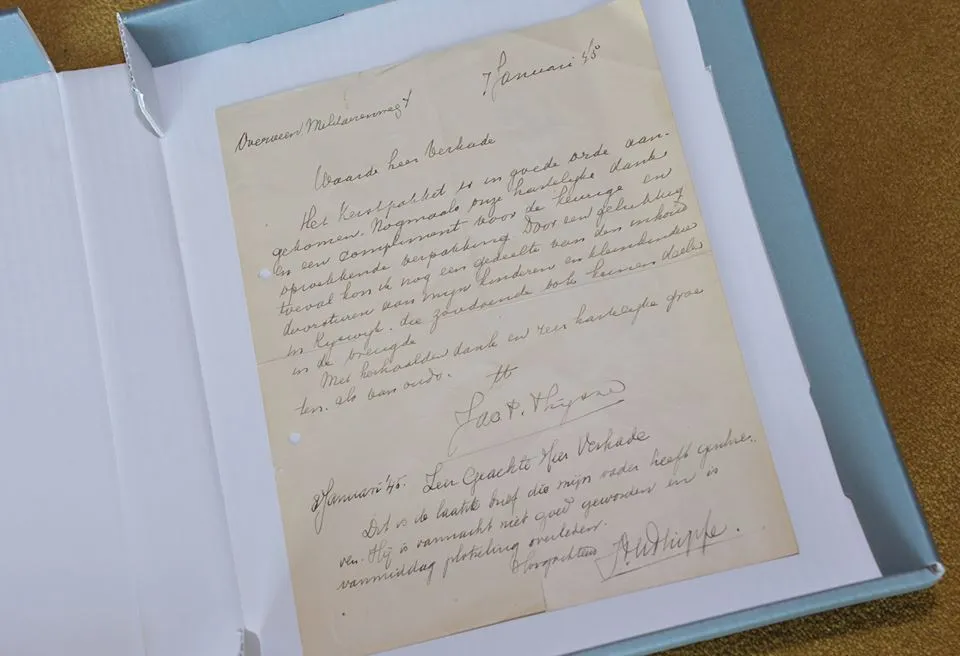 7 Januari '45
Overveen Meldarenweg 4
Waarde heer Verkade
Het Kerstpakket is in goede orde aan-
gekomen. Nogmaals onze hartelijke dank
en een compliment voor de keurige en
opwekkende verpakking. Door een gelukkig
toeval kon ik nog een gedeelte van den inhoud
doorsturen aan mijn kinderen en kleinkinderen
in Rijswijk. die zoodoende ook kunnen deelen
in de vreugde
Met herhaalden dank en zeer hartelijke groe
ten. als van ouds.
tt
Jac. P. Thijsse
8 Januari '45. Zeer Geachte Heer Verkade
Dit is de laatste brief die mijn vader heeft geschre-
ven. Hij is vannacht niet goed geworden en is
vanmiddag plotseling overleden.
Hoogachtend